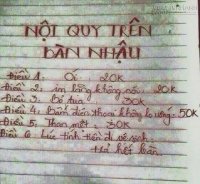 NỘI QUY TRÊN
BÀN NHẬU
Điều 1: Ói: 20K
Điều 2: im lặng không nói: 20K
Điều 3: Bỏ bữa: 30K
Điều 4: Bấm điện thoại không lo uống: 50K
Điều 5: Than mệt: 30K
Điều 6: Lúc tính tiền đi vệ sinh:
trả hết bàn.